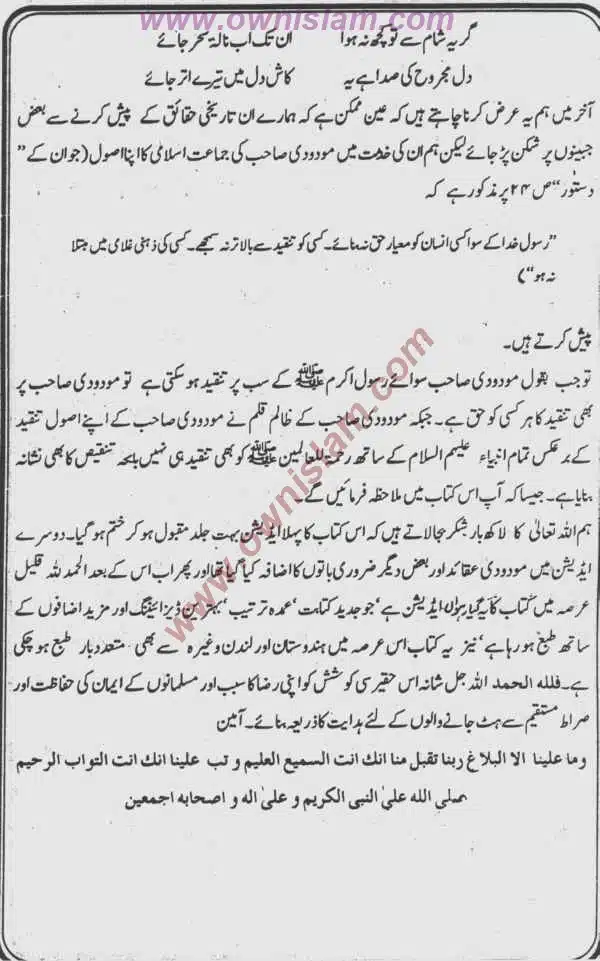 www.ownislam.com
گریہ شام سے تو کچھ نہ ہوا ان تک اب نالۂ سحر جائے
دل مجروح کی صدا ہے یہ کاش دل میں تیرے اتر جائے
آخر میں ہم یہ عرض کرنا چاہتے ہیں کہ عین ممکن ہے کہ ہمارے ان تاریخی حقائق کے پیش کرنے سے بعض
جبینوں پر شکن پڑ جائے لیکن ہم ان کی خدمت میں مودودی صاحب کی جماعت اسلامی کا اپنا اصول (جو ان کے "
دستور" ص ۲۴ پر مذکور ہے کہ
"رسول خدا کے سوا کسی انسان کو معیار حق نہ بنائے۔ کسی کو تنقید سے بالاتر نہ سمجھے۔ کسی کی ذہنی غلامی میں مبتلا
نہ ہو")
پیش کرتے ہیں۔
تو جب بقول مودودی صاحب سوائے رسول اکرم ﷺ کے سب پر تنقید ہو سکتی ہے تو مودودی صاحب پر
بھی تنقید کا ہر کسی کو حق ہے۔ جبکہ مودودی صاحب کے ظالم قلم نے مودودی صاحب کے اپنے اصول تنقید
کے برعکس تمام انبیاء علیہم السلام کے ساتھ رحمۃ للعالمین ﷺ کو بھی تنقید ہی نہیں بلکہ تنقیص کا بھی نشانہ
بنایا ہے۔ جیسا کہ آپ اس کتاب میں ملاحظہ فرمائیں گے۔
ہم اللہ تعالیٰ کا لاکھ بار شکر بجا لاتے ہیں کہ اس کتاب کا پہلا ایڈیشن بہت جلد مقبول ہو کر ختم ہو گیا۔ دوسرے
ایڈیشن میں مودودی عقائد اور بعض دیگر ضروری باتوں کا اضافہ کیا گیا تھا اور پھر اب اس کے بعد الحمد للہ قلیل
عرصہ میں کتاب کا یہ گیارہواں ایڈیشن ہے' جو جدید کتابت' عمدہ ترتیب' بہترین ڈیزائیننگ اور مزید اضافوں کے
ساتھ طبع ہو رہا ہے' نیز یہ کتاب اس عرصہ میں ہندوستان اور لندن وغیرہ سے بھی متعدد بار طبع ہو چکی
ہے۔ فللہ الحمد اللہ جل شانہ اس حقیر سی کوشش کو اپنی رضا کا سبب اور مسلمانوں کے ایمان کی حفاظت اور
صراط مستقیم سے ہٹ جانے والوں کے لئے ہدایت کا ذریعہ بنائے۔ آمین
وما علینا الا البلاغ ربنا تقبل منا انک انت السمیع العلیم و تب علینا انک انت التواب الرحیم
صلی اللہ علی النبی الکریم و علیٰ الہ و اصحابہ اجمعین
www.ownislam.com